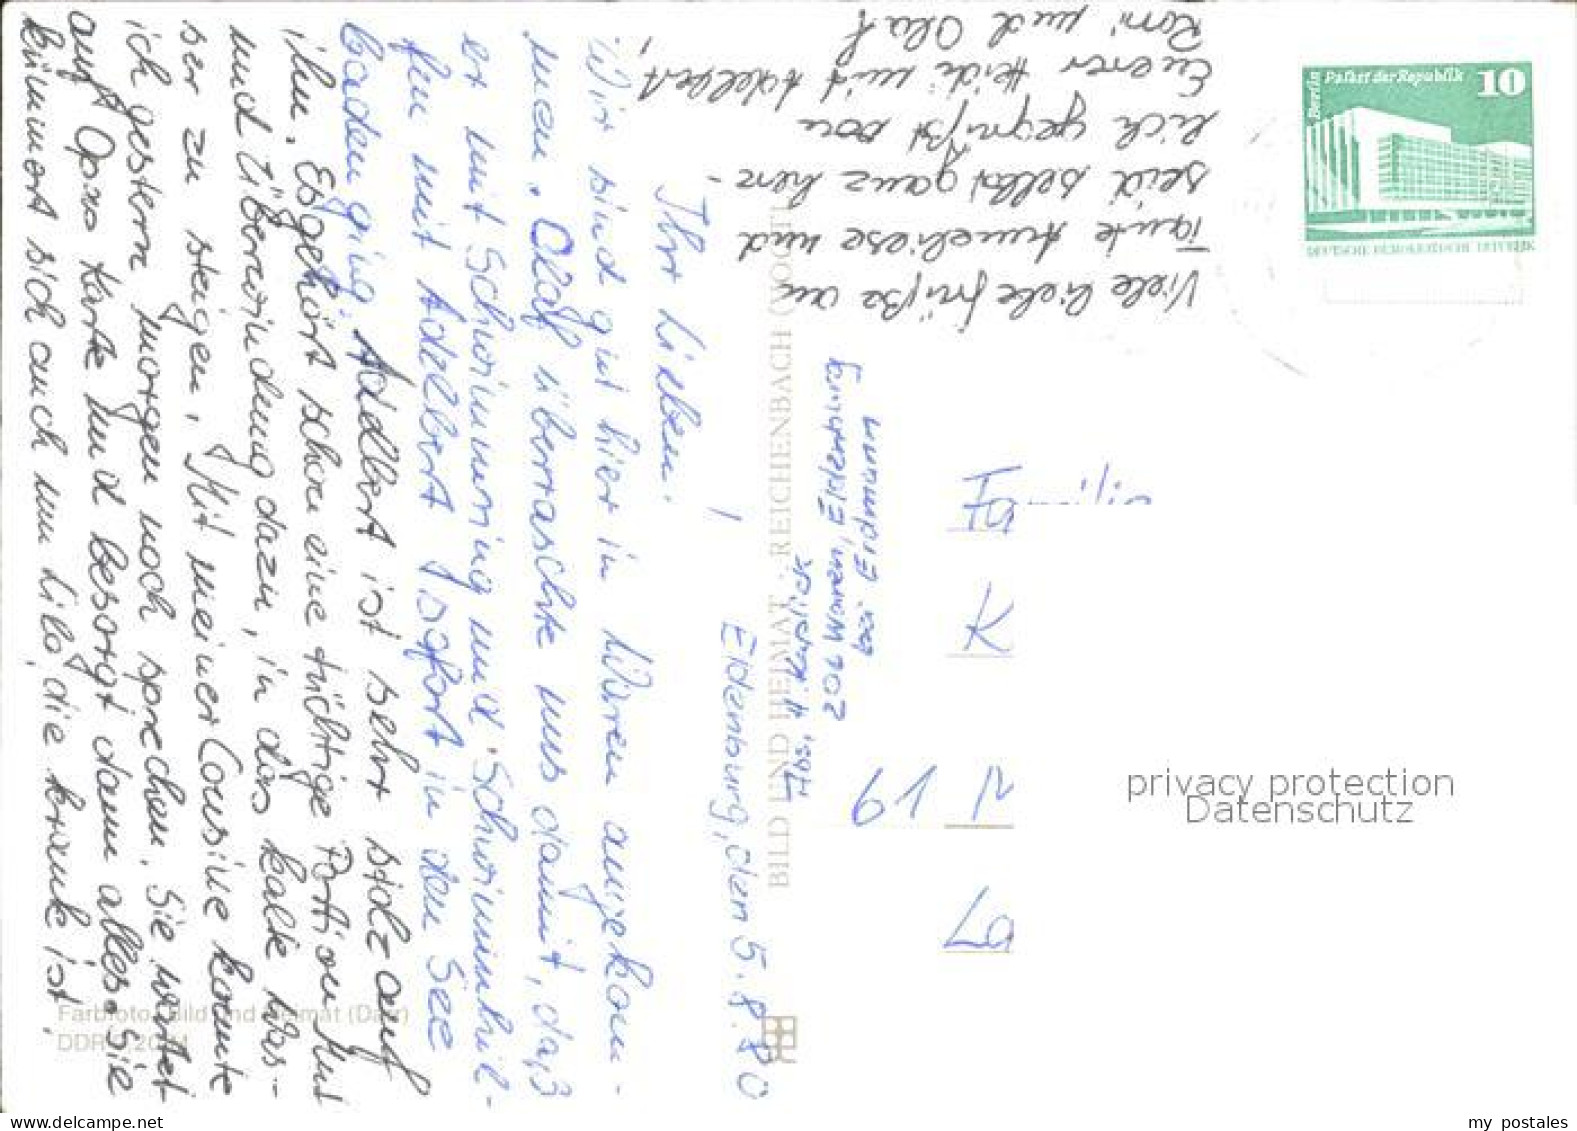 Eldenburg, den 5.8.80
Ihr Lieben!
Wir sind gut hier in Waren angekom-
men. Olaf überraschte uns damit, daß
er mit Schwimmring und Schwimmhil-
fen mit Adelbert sofort in den See
baden ging. Adelbert ist sehr stolz auf
ihn. Es gehört schon eine tüchtige Portion Mut
und Überwindung dazu, in das kalte Was-
ser zu steigen. Mit meiner Cousine konnte
ich gestern morgen noch sprechen. Sie wartet
auf Opas Karte und besorgt dann alles. Sie
kümmert sich auch um Lilo, die krank ist.
Viele liebe Grüße an
Tante Anneliese und
seid selbst ganz herz-
lich gegrüßt von
Eurer Heidi mit Adelbert,
Romi und Olaf
!
Abs.: H.
206 Waren, Eldenburg
bei Eidmann
Familie
K
61
La
Berlin Palast der Republik 10
DEUTSCHE DEMOKRATISCHE REPUBLIK
BILD UND HEIMAT · REICHENBACH (VOGTL)
Farbfoto: Bild und Heimat (Darr)
privacy protection
Datenschutz
my postales